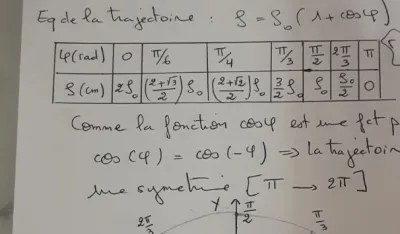 Eq de la trajectoire : ρ = ρ₀ ( 1 + cosφ )
φ(rad) 0 π/6 π/4 π/3 π/2 2π/3 π
ρ(cm) 2ρ₀ ((2+√3)/2) ρ₀ ((2+√2)/2) ρ₀ 3/2 ρ₀ ρ₀ ρ₀/2 0
Comme la fonction cosφ est une fct p
cos (φ) = cos(-φ) ⇒ la trajectoir
une symetrie [ π → 2π ]
Y π/2
2π/3 π/3